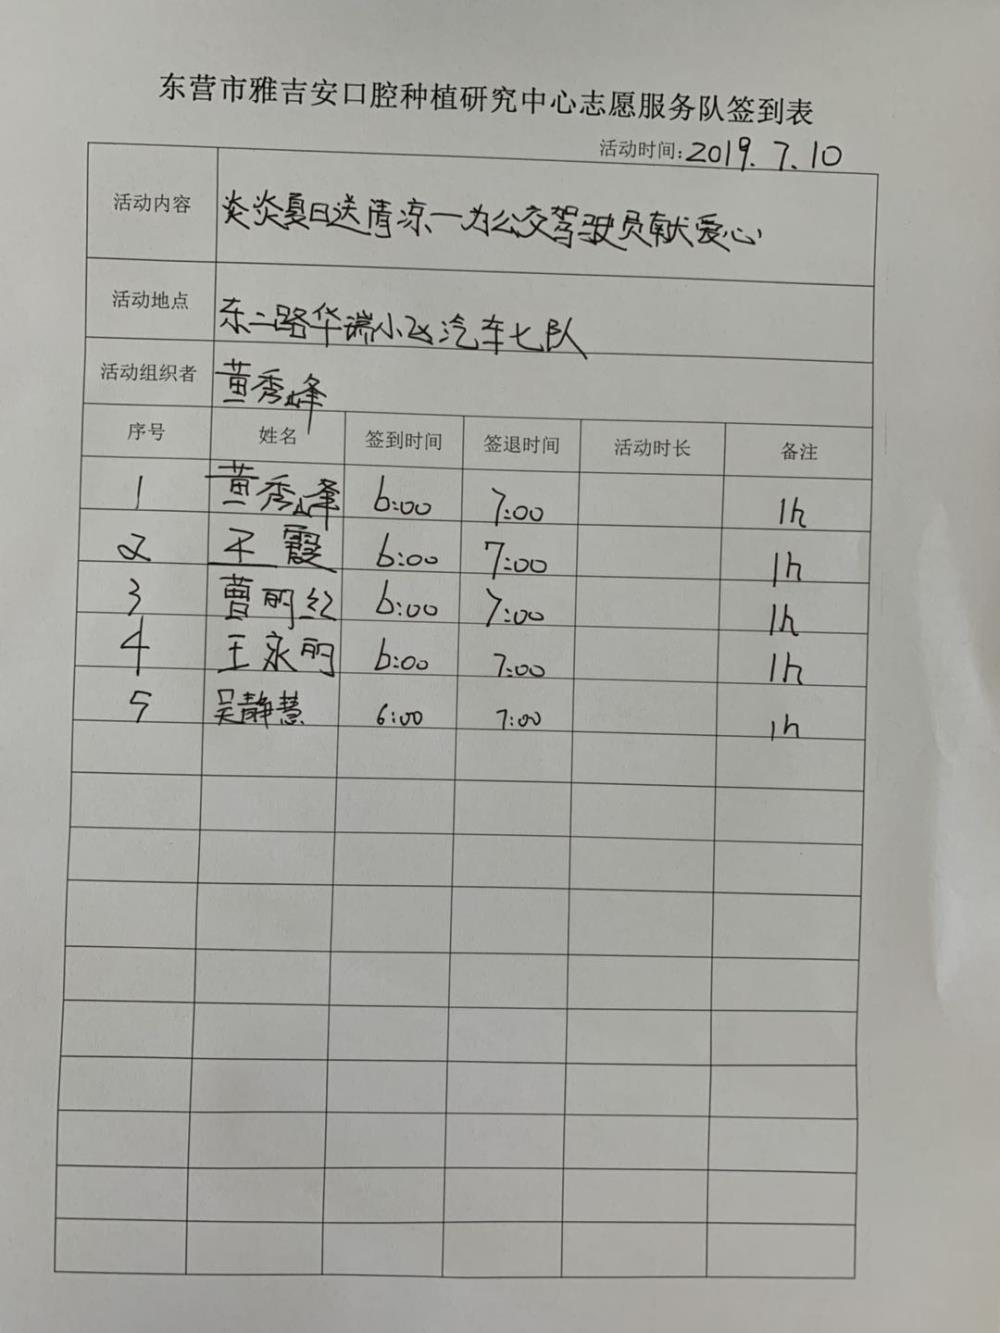 东营市雅吉安口腔种植研究中心志愿服务队签到表
活动时间:2019.7.10
活动内容 炎炎夏日送清凉一为公交驾驶员献爱心
活动地点 东二路华瑞小区汽车七队
活动组织者 黄秀峰
序号 姓名 签到时间 签退时间 活动时长 备注
1 黄秀峰 6:00 7:00 1h
2 王霞 6:00 7:00 1h
3 曹明红 6:00 7:00 1h
4 王永明 6:00 7:00 1h
5 吴静慧 6:00 7:00 1h